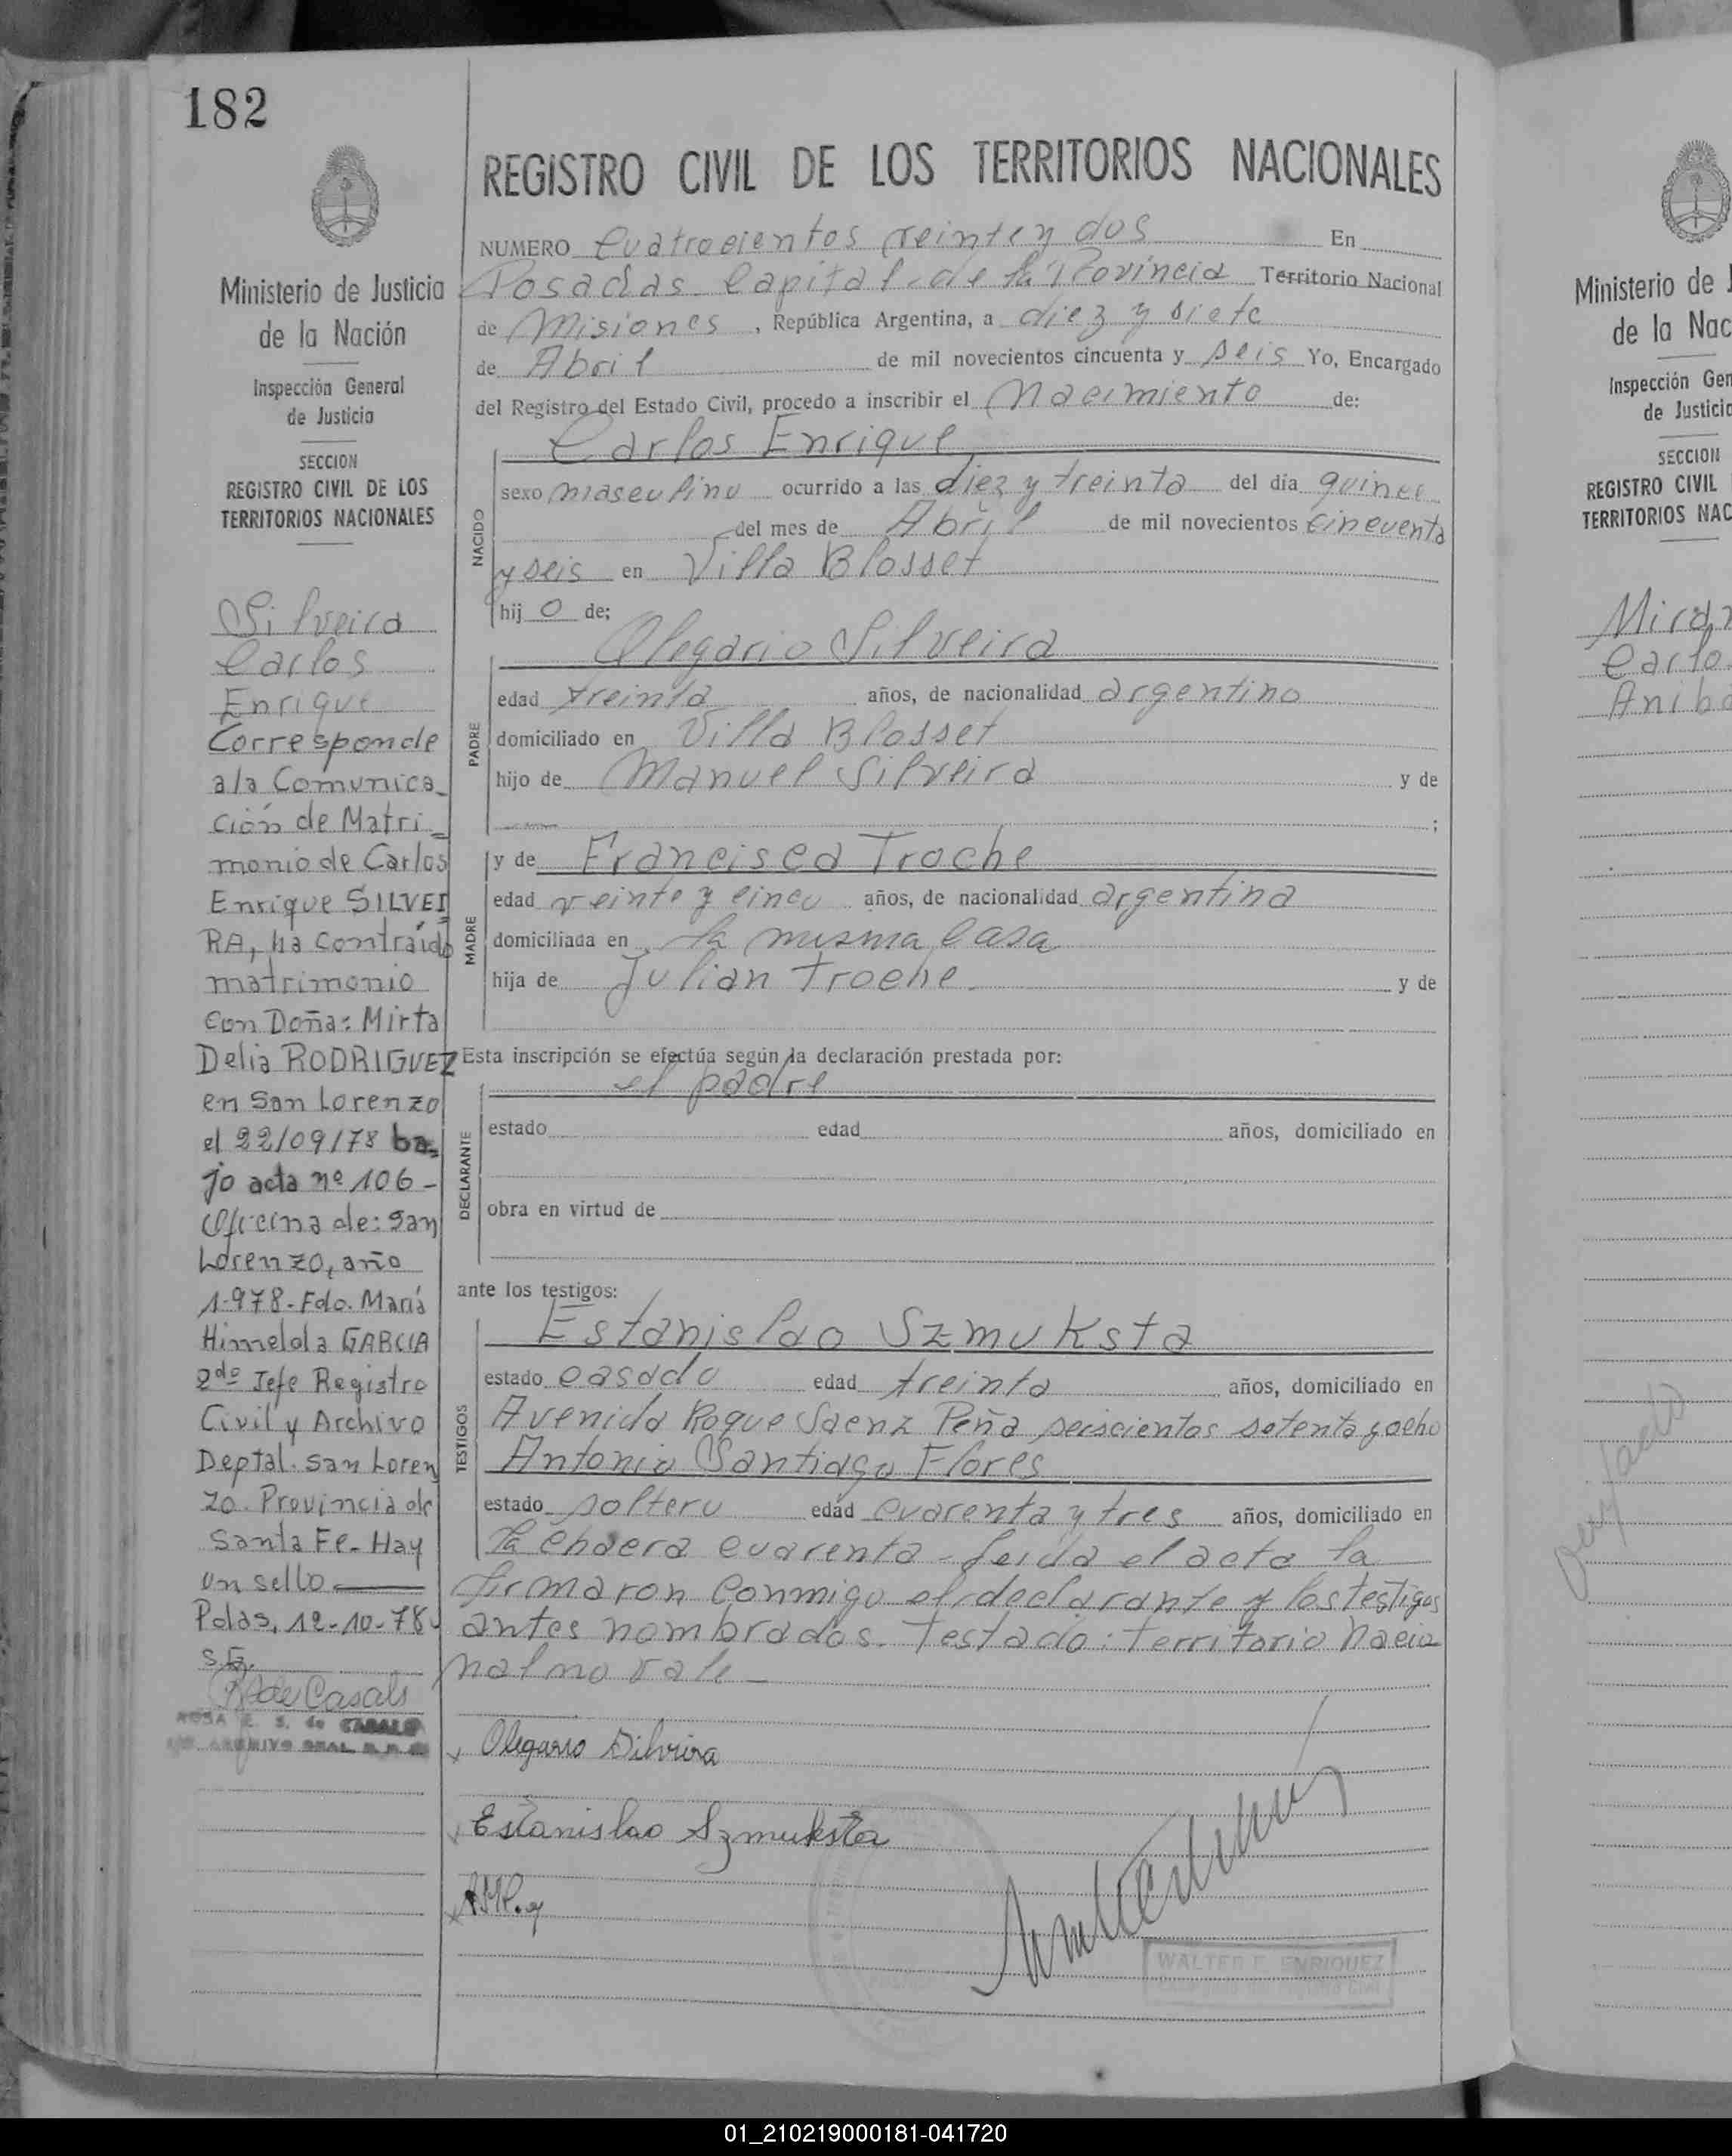 182
Ministerio de Justicia
de la Nación
Inspección General
de Justicia
SECCION
REGISTRO CIVIL DE LOS
TERRITORIOS NACIONALES
Silveira
Carlos
Enrique
Corresponde
a la Comunica_
ción de Matri_
monio de Carlos
Enrique SILVEI
RA, ha contraído
matrimonio
con Doña: Mirta
Delia RODRIGUEZ
en San Lorenzo
el 22/09/78 ba_
jo acta nº 106 -
Oficina de: San
Lorenzo, año
1.978. Fdo. María
Himelda GARCIA
2do Jefe Registro
Civil y Archivo
Deptal. San Loren
zo. Provincia de
Santa Fe. Hay
un sello
Pdas, 12-10-78
R. de Casals
ROSA E. S. de CASALS
REGISTRO CIVIL DE LOS TERRITORIOS NACIONALES
NUMERO Cuatrocientos veinte y dos En
Posadas Capital de la Provincia Territorio Nacional
de Misiones, República Argentina, a diez y siete
de Abril de mil novecientos cincuenta y seis Yo, Encargado
del Registro del Estado Civil, procedo a inscribir el Nacimiento de:
NACIDO
Carlos Enrique
sexo masculino ocurrido a las diez y treinta del día quince
del mes de Abril de mil novecientos cincuenta
y seis en Villa Blosset
hij o de;
PADRE
Olegario Silveira
edad treinta años, de nacionalidad argentino
domiciliado en Villa Blosset
hijo de Manuel Silveira y de
;
MADRE
y de Francisca Troche
edad veinte y cinco años, de nacionalidad argentina
domiciliada en la misma casa
hija de Julian Troche y de
Esta inscripción se efectúa según la declaración prestada por:
DECLARANTE
el padre
estado edad años, domiciliado en
obra en virtud de
ante los testigos:
TESTIGOS
Estanislao Szmuksta
estado casado edad treinta años, domiciliado en
Avenida Roque Saenz Peña seiscientos setenta y ocho
Antonio Santiago Flores
estado soltero edad cuarenta y tres años, domiciliado en
la chacra cuarenta - leida el acta la
firmaron conmigo el declarante y los testigos
antes nombrados. Testado: territorio nacio
nal no vale
Olegario Silveira
Estanislao Szmuksta
WALTER E. ENRIQUEZ
Encargado del Registro Civil
Ministerio de J
de la Nac
Inspección Gen
de Justicia
SECCION
REGISTRO CIVIL
TERRITORIOS NAC
Miran
Carlo
Aniba
01_210219000181-041720